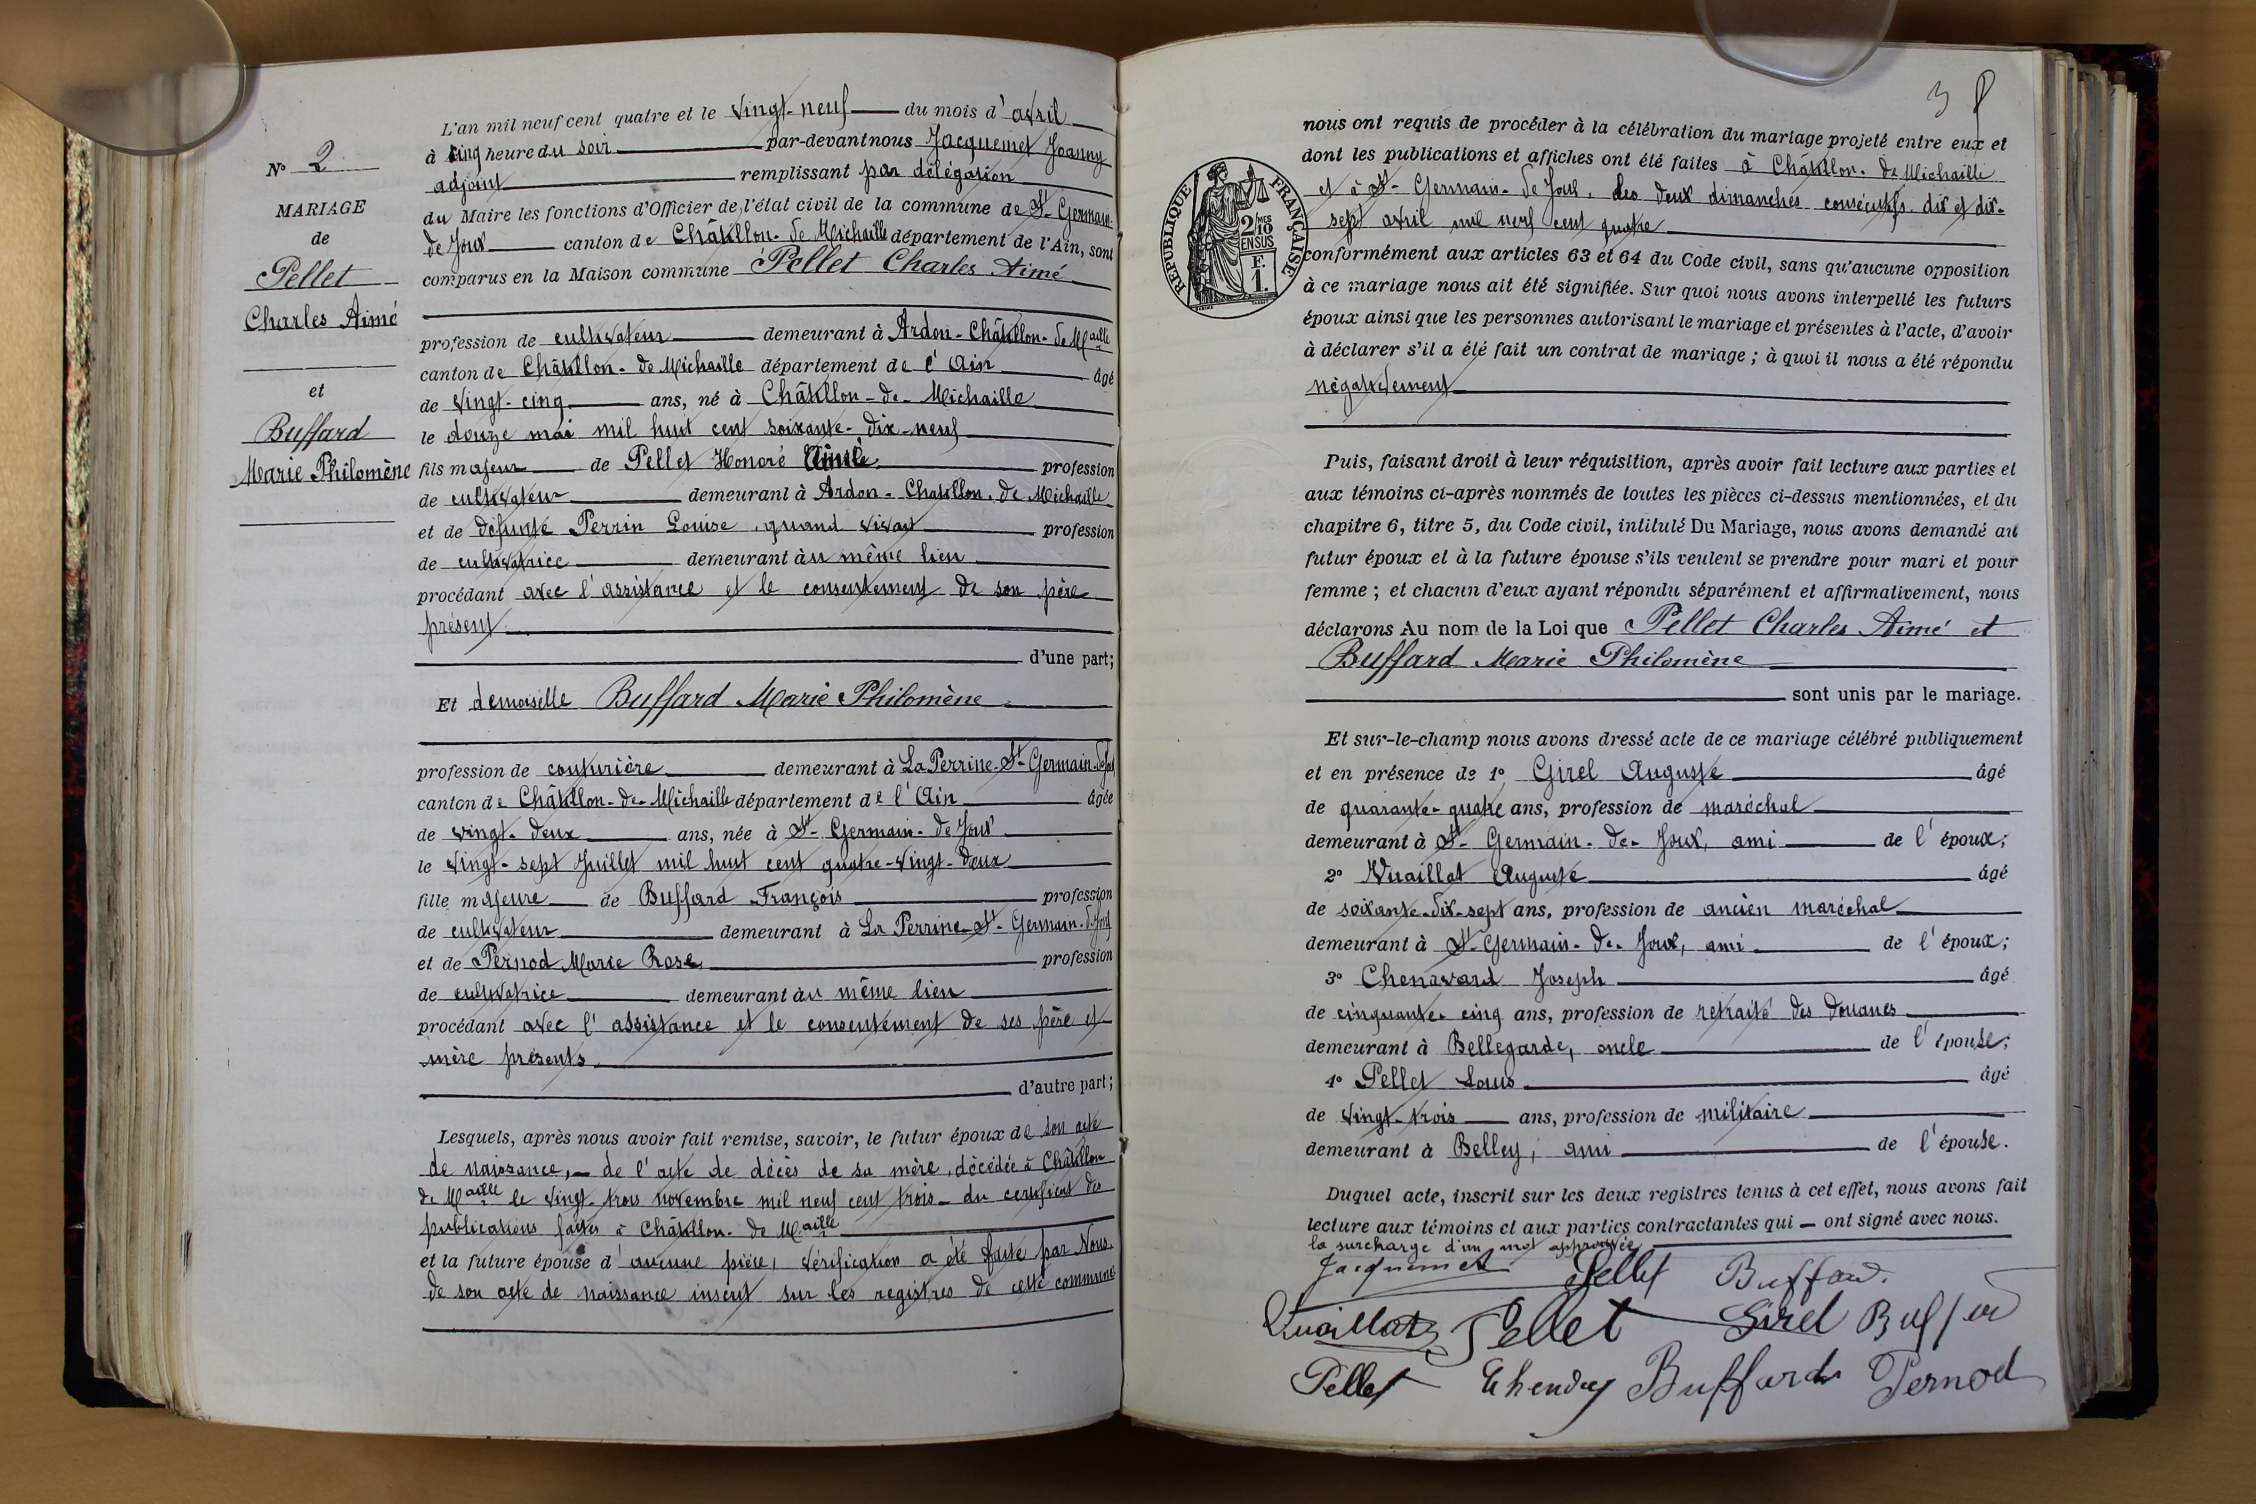 N° 2
MARIAGE
de
Pellet
Charles Aimé
et
Buffard
Marie Philomène
L'an mil neuf cent quatre et le vingt-neuf du mois d'avril
à cinq heure du soir par-devant nous Jacquemet Joanny
adjoint remplissant par délégation
du Maire les fonctions d'Officier de l'état civil de la commune de St-Germain-
de Joux canton de Châtillon-de Michaille département de l'Ain, sont
comparus en la Maison commune Pellet Charles Aimé
profession de cultivateur demeurant à Ardon-Châtillon-de Maille
canton de Châtillon-de Michaille département de l'Ain âgé
de vingt-cinq ans, né à Châtillon-de-Michaille
le douze mai mil huit cent soixante-dix-neuf
fils majeur de Pellet Honoré profession
de cultivateur demeurant à Ardon-Chatillon-de Michaille
et de défunte Perrin Louise, quand vivait profession
de cultivatrice demeurant au même lieu
procédant avec l'assistance et le consentement de son père
présent.
d'une part;
Et demoiselle Buffard Marie Philomène
profession de couturière demeurant à La Perrine-St-Germain-de Joux
canton de Châtillon-de-Michaille département de l'Ain âgée
de vingt-deux ans, née à St-Germain-de Joux
le vingt-sept Juillet mil huit cent quatre-vingt-deux
fille majeure de Buffard François profession
de cultivateur demeurant à La Perrine-St-Germain-de Joux
et de Pernod Marie Rose profession
de cultivatrice demeurant au même lieu
procédant avec l'assistance et le consentement de ses père et
mère présents.
d'autre part;
Lesquels, après nous avoir fait remise, savoir, le futur époux de son acte
de naissance,— de l'acte de décès de sa mère, décédée à Châtillon
de Maille le vingt-trois novembre mil neuf cent trois— du certificat des
publications faites à Châtillon-de Maille
et la future épouse d'aucune pièce, vérification a été faite par Nous
de son acte de naissance inscrit sur les registres de cette commune
3
RÉPUBLIQUE FRANÇAISE
2/10 MES
EN SUS
F.
1.
nous ont requis de procéder à la célébration du mariage projeté entre eux et
dont les publications et affiches ont été faites à Châtillon-de Michaille
et à St-Germain-de Joux, les deux dimanches consécutifs dix et dix-
sept avril mil neuf cent quatre
conformément aux articles 63 et 64 du Code civil, sans qu'aucune opposition
à ce mariage nous ait été signifiée. Sur quoi nous avons interpellé les futurs
époux ainsi que les personnes autorisant le mariage et présentes à l'acte, d'avoir
à déclarer s'il a été fait un contrat de mariage ; à quoi il nous a été répondu
négativement
Puis, faisant droit à leur réquisition, après avoir fait lecture aux parties et
aux témoins ci-après nommés de toutes les pièces ci-dessus mentionnées, et du
chapitre 6, titre 5, du Code civil, intitulé Du Mariage, nous avons demandé au
futur époux et à la future épouse s'ils veulent se prendre pour mari et pour
femme ; et chacun d'eux ayant répondu séparément et affirmativement, nous
déclarons Au nom de la Loi que Pellet Charles Aimé et
Buffard Marie Philomène
sont unis par le mariage.
Et sur-le-champ nous avons dressé acte de ce mariage célébré publiquement
et en présence de 1° Girel Auguste âgé
de quarante-quatre ans, profession de maréchal
demeurant à St-Germain-de-Joux, ami de l'époux;
2° Vuaillat Auguste âgé
de soixante-dix-sept ans, profession de ancien maréchal
demeurant à St-Germain-de-Joux, ami de l'époux;
3° Chenavard Joseph âgé
de cinquante-cinq ans, profession de retraité des douanes
demeurant à Bellegarde, oncle de l'épouse;
4° Pellet Louis âgé
de vingt-trois ans, profession de militaire
demeurant à Belley, ami de l'épouse.
Duquel acte, inscrit sur les deux registres tenus à cet effet, nous avons fait
lecture aux témoins et aux parties contractantes qui — ont signé avec nous.
la surcharge d'un mot approuvée
Jacquemet Pellet Buffard.
Vuaillat Pellet Girel
Pellet Buffard Pernod